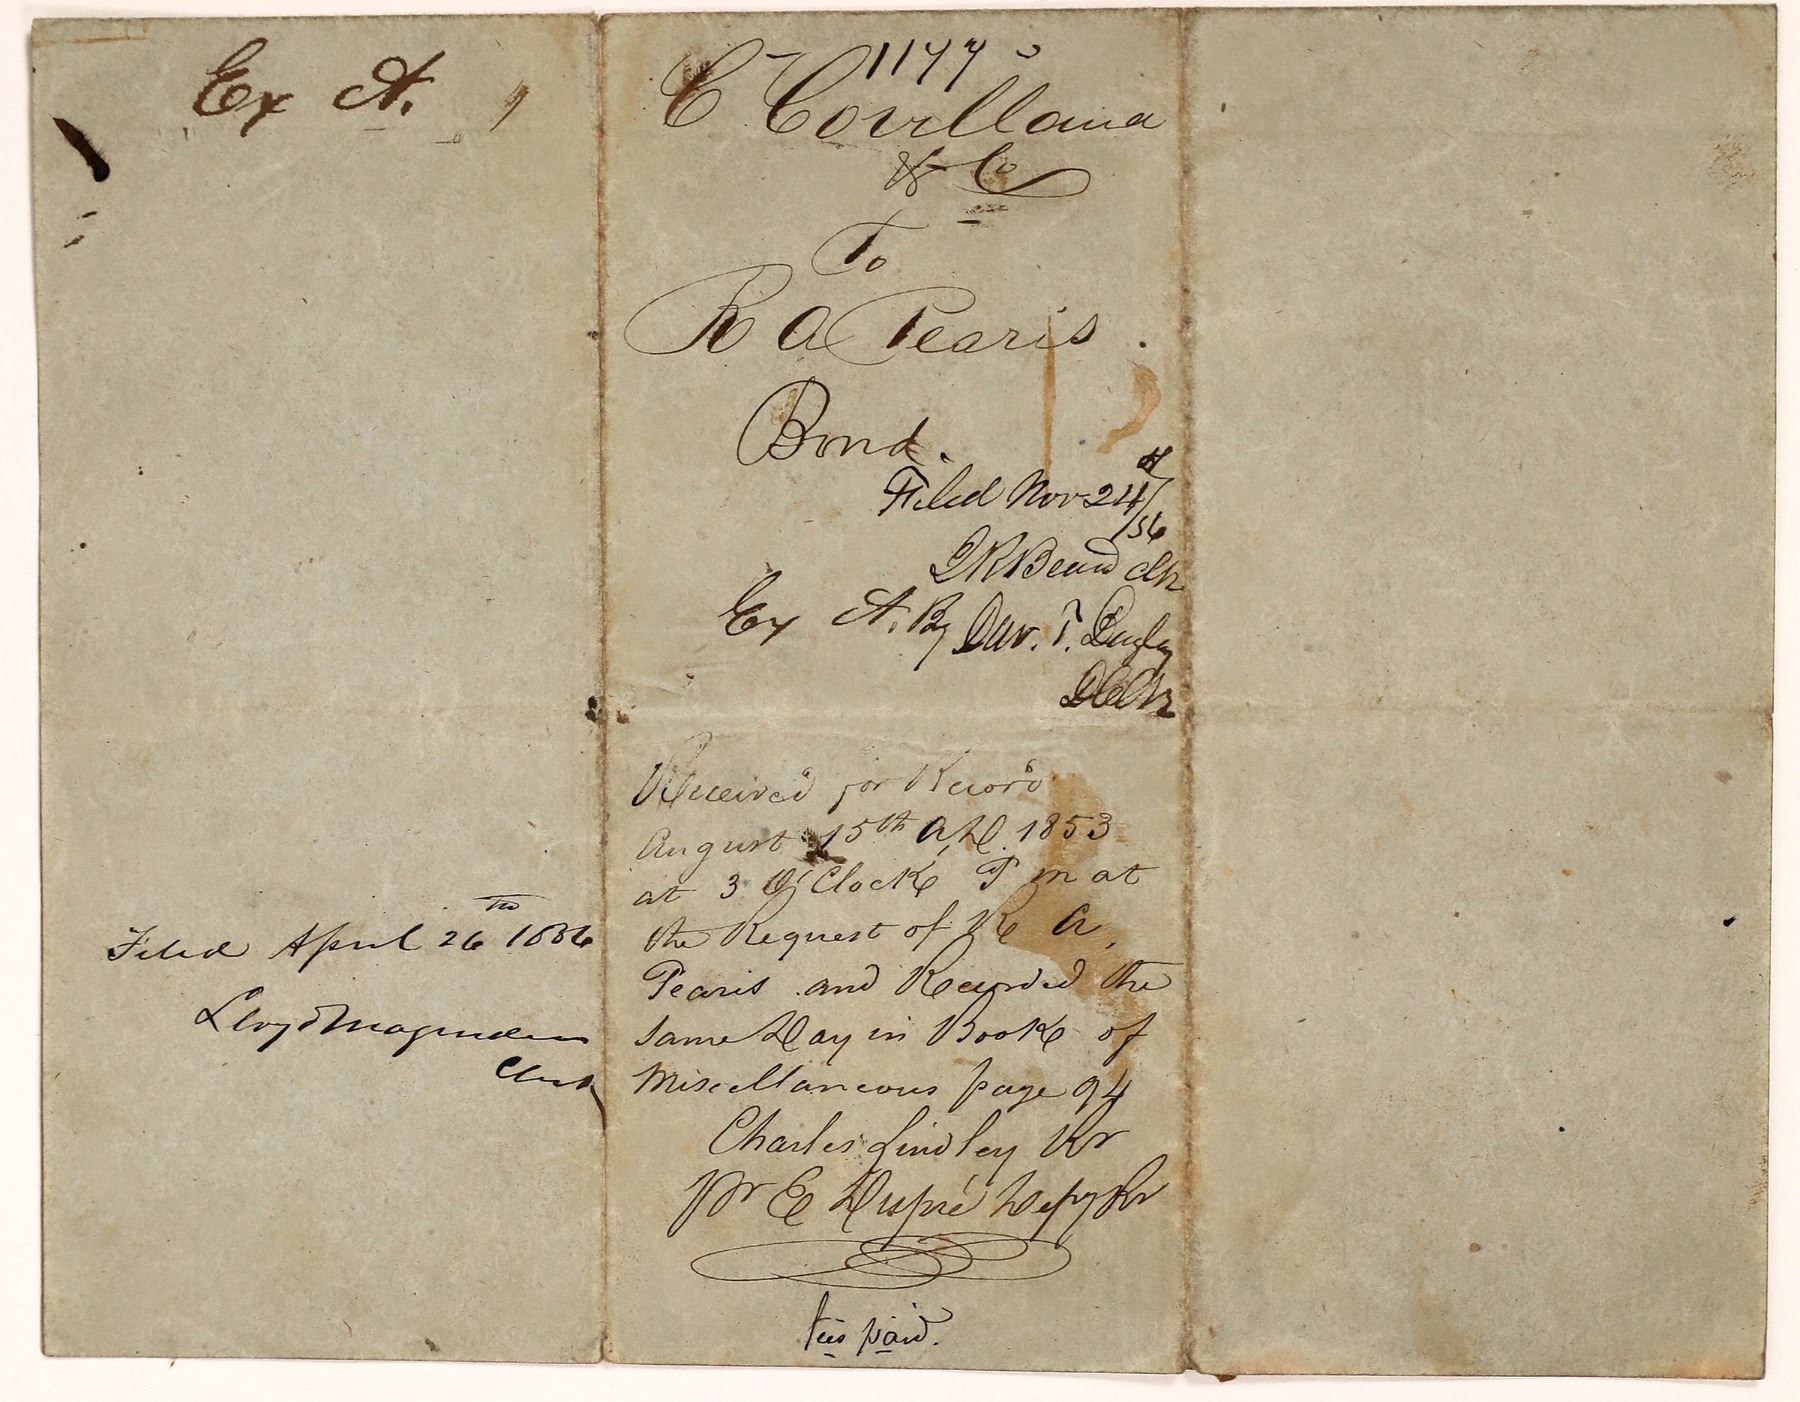 Ex A.
Filed April 26th 1856
Lloyd Magruder
Clerk
1177
C Covillaud
& Co
To
R A Pearis
Bond.
Filed Nov 24th/56
Beard Clk
Ex A. By Dav. T.
D Clk
Received for Record
August 15th A,D. 1853
at 3 O'Clock P m at
the Request of R A,
Pearis and Recorded the
same Day in Book of
Miscellaneous page 94
Charles Lindley Rr
pr E Dupré Depy Rr
fees paid.